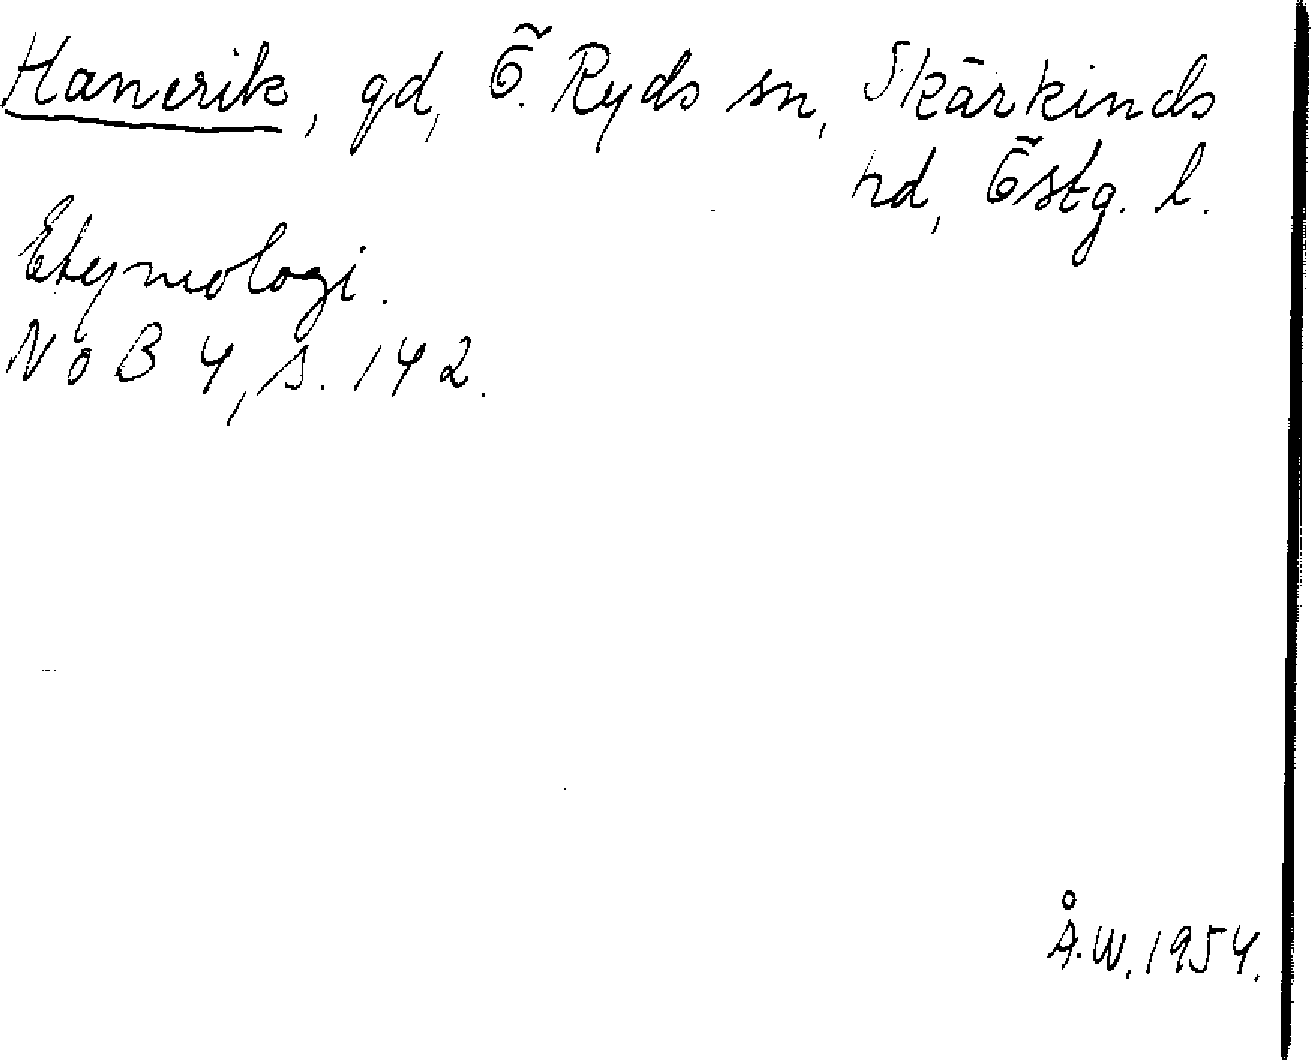 Hanerik, gd, Ö. Ryds sn, Skärkinds
hd, Östg. l.
Etymologi.
NoB 4, s. 142.
Å.W. 1954.